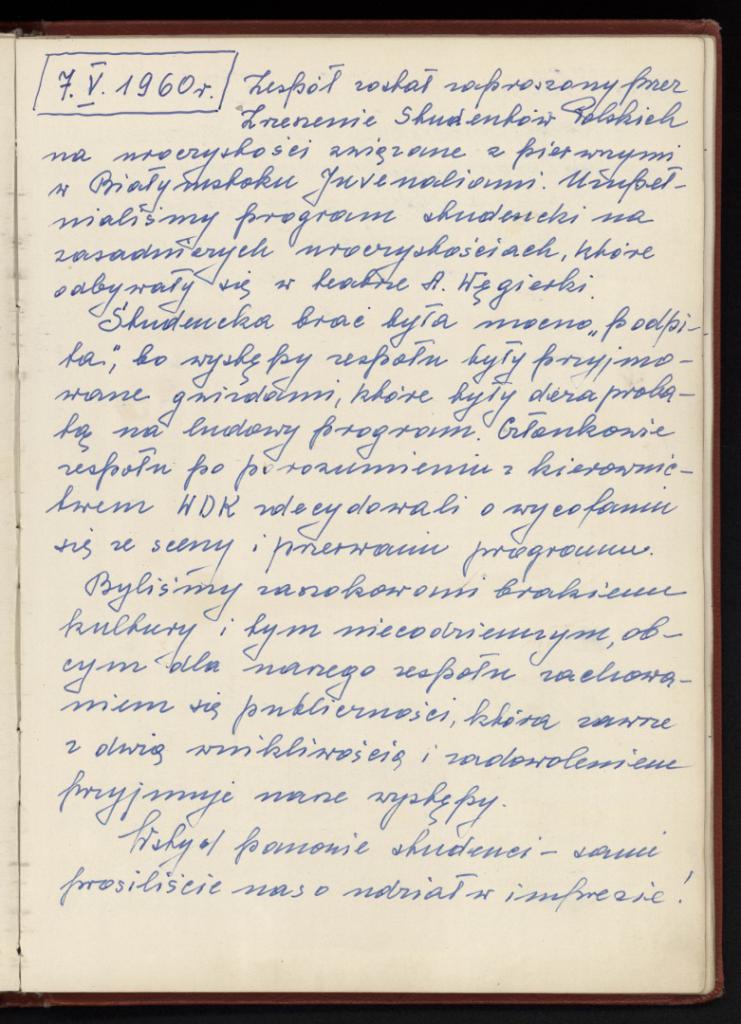 7. V. 1960 r. Zespół został zaproszony przez
Zrzeszenie Studentów Polskich
na uroczystości związane z pierwszymi
w Białymstoku Juvenaliami. Uzupeł-
nialiśmy program studencki na
zasadniczych uroczystościach, które
odbywały się w teatrze A. Węgierki.
Studencka brać była mocno „podpi-
ta”, bo występy zespołu były przyjmo-
wane gwizdami, które były dezaproba-
tą na ludowy program. Członkowie
zespołu po porozumieniu z kierownic-
twem WDK zdecydowali o wycofaniu
się ze sceny i przerwaniu programu.
Byliśmy zaszokowani brakiem
kultury i tym niecodziennym, ob-
cym dla naszego zespołu zachowa-
niem się publiczności, która zawsze
z wnikliwością i zadowoleniem
przyjmuje nasze występy.
Wstyd panowie studenci – sami
prosiliście nas o udział w imprezie!